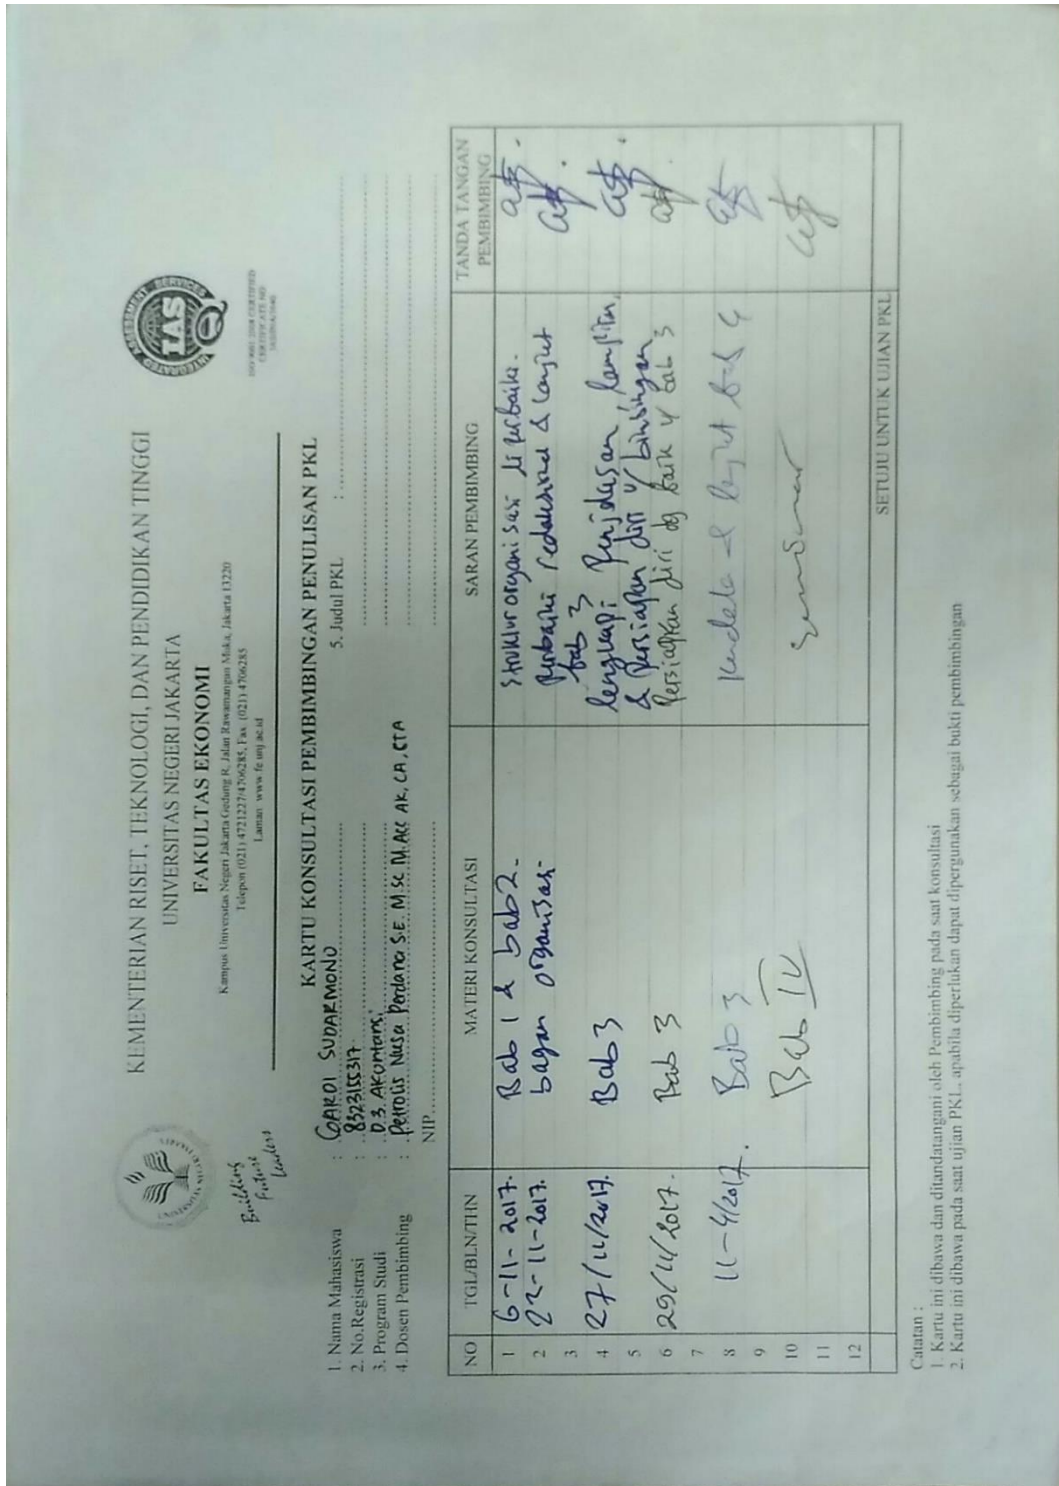 KEMENTERIAN RISET, TEKNOLOGI, DAN PENDIDIKAN TINGGI
UNIVERSITAS NEGERI JAKARTA
FAKULTAS EKONOMI
Kampus Universitas Negeri Jakarta Gedung R, Jalan Rawamangun Muka, Jakarta 13220
Telepon (021) 4721227/4706285, Fax. (021) 4706285
Laman www.fe.unj.ac.id
Building Future Leaders
INTEGRATED ASSESSMENT SERVICES
IAS
KARTU KONSULTASI PEMBIMBINGAN PENULISAN PKL
1. Nama Mahasiswa : SUDARMONO
2. No.Registrasi : 8323155317
3. Program Studi : D3. Akuntansi
4. Dosen Pembimbing : Petrolis Nusa Perdana S.E. M.Sc M.Acc AK, CA, CTA
NIP
5. Judul PKL :
NO TGL/BLN/THN MATERI KONSULTASI SARAN PEMBIMBING TANDA TANGAN PEMBIMBING
1 6-11-2017. Bab 1 & bab 2 Struktur organisasi diperbaiki.
2 22-11-2017. bagan organisasi Perbaiki redaksional & lanjut
3 bab 3
4 27/11/2017. Bab 3 lengkapi penjelasan, lampiran,
5 & persiapkan diri u/ bimbingan
6 29/11/2017. Bab 3 Persiapkan diri dg baik u/ bab 3
7
8 Bab 3 lanjut bab 4
9
10 Bab IV
11
12
SETUJU UNTUK UJIAN PKL
Catatan :
1. Kartu ini dibawa dan ditandatangani oleh Pembimbing pada saat konsultasi
2. Kartu ini dibawa pada saat ujian PKL, apabila diperlukan dapat dipergunakan sebagai bukti pembimbingan